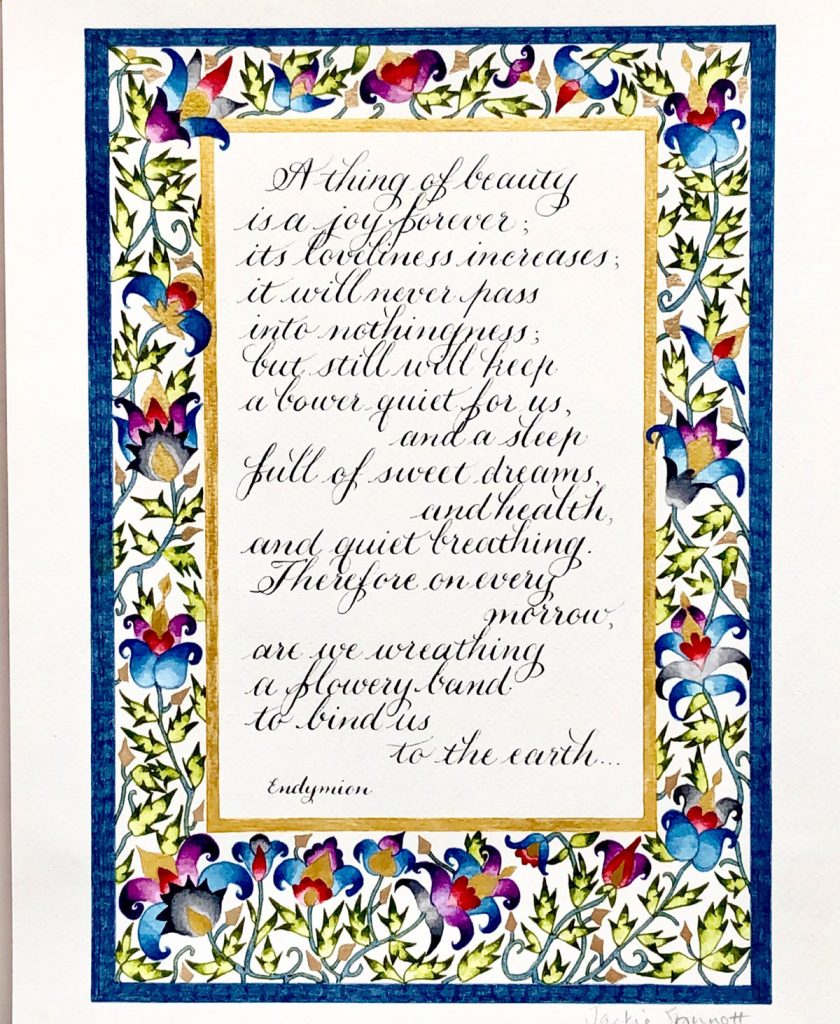 A thing of beauty
is a joy forever;
its loveliness increases;
it will never pass
into nothingness;
but still will keep
a bower quiet for us,
and a sleep
full of sweet dreams,
and health,
and quiet breathing.
Therefore on every
morrow,
are we wreathing
a flowery band
to bind us
to the earth...
Endymion
Jackie